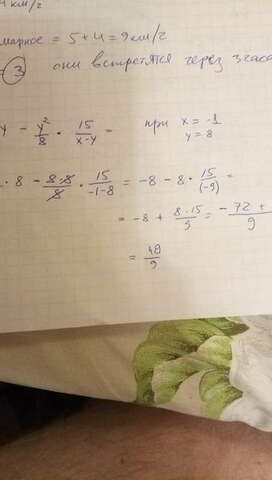 км/г
марное = 5 + 4 = 9 км/г
3 они встретятся через 3 часа
y - y²/8 · 15/(x-y) = при x = -1
y = 8
· 8 - 8·8/8 · 15/(-1-8) = -8 - 8 · 15/(-9) =
= -8 + 8·15/9 = -72 +/9
= 48/9